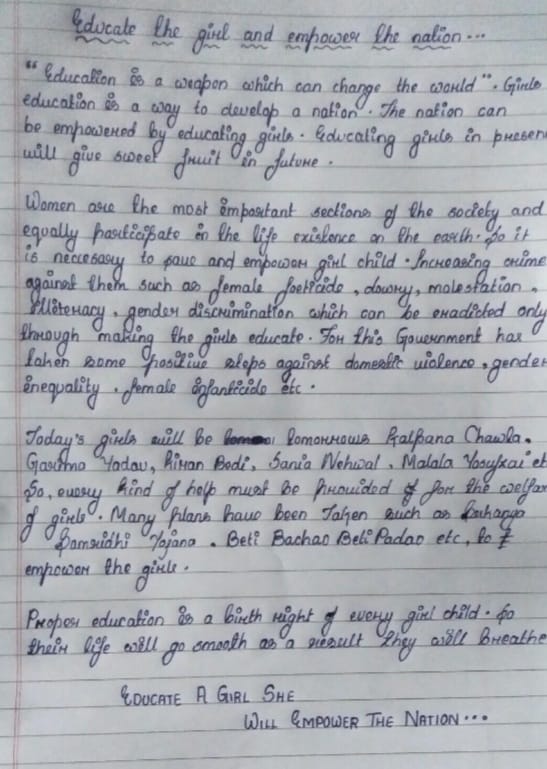 Educate the girl and empower the nation...
"Education is a weapon which can change the world". Girls
education is a way to develop a nation. The nation can
be empowered by educating girls. Educating girls in presen
will give sweet fruit in future.
Women are the most important sections of the society and
equally participate in the life existence on the earth. So it
is neccesary to save and empower girl child. Increasing crime
against them such as female foeticide, dowry, molestation,
illiteracy, gender discrimination which can be eradicted only
through making the girls educate. For this Government has
taken some positive steps against domestic violence, gender
inequality, female infanticide etc.
Today's girls will be tomorrows Kalpana Chawla,
Garima Yadav, Kiran Bedi, Sania Nehwal, Malala Yosufzai et
So, every kind of help must be provided for the welfar
of girls. Many plans have been Taken such as
Samridhi Yojana, Beti Bachao Beti Padao etc, to
empower the girls.
Proper education is a birth right of every girl child. So
their life will go smooth as a result they will breathe
EDUCATE A GIRL SHE
WILL EMPOWER THE NATION...